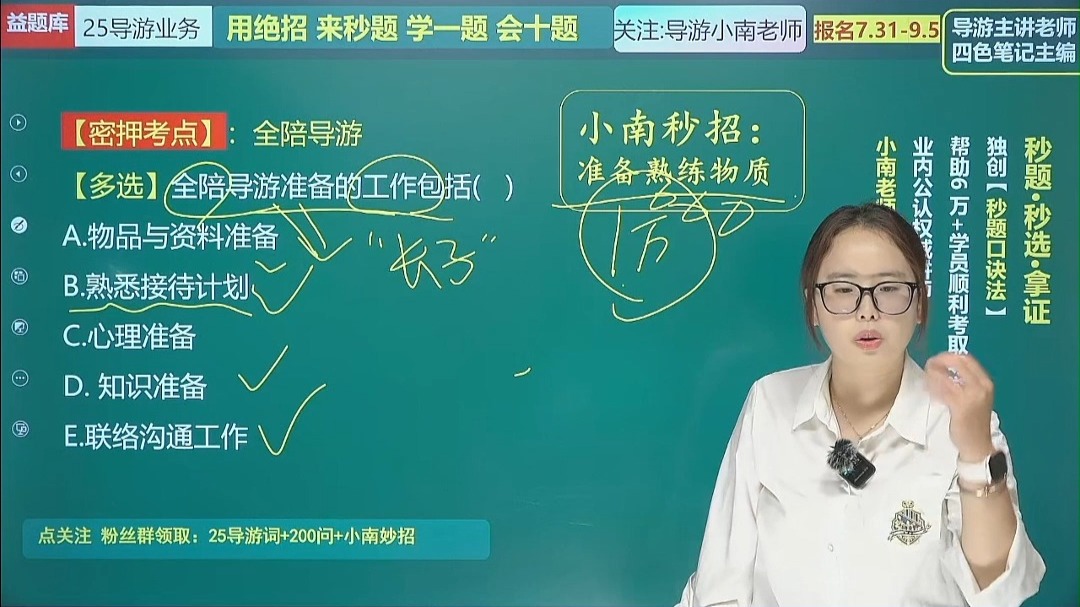 益题库 25导游业务 用绝招 来秒题 学一题 会十题 关注:导游小南老师 报名7.31-9.5 导游主讲老师
四色笔记主编
【密押考点】：全陪导游
【多选】全陪导游准备的工作包括( )
A.物品与资料准备
B.熟悉接待计划
C.心理准备
D. 知识准备
E.联络沟通工作
"长子"
小南秒招：
准备熟练物质
1万
秒题·秒选·拿证
独创【秒题口诀法】
帮助6万+学员顺利考取
业内公认权威
小南老师
点关注 粉丝群领取：25导游词+200问+小南妙招